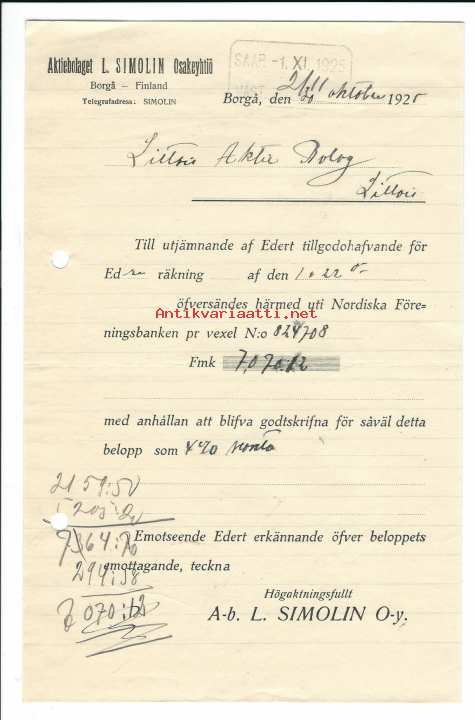 Aktiebolaget L. SIMOLIN Osakeyhtiö
Borgå – Finland
Telegrafadress: SIMOLIN
SAAP. -1. XI. 1925
Borgå, den oktober 1925
Littois Aktie Bolag
Littois
Till utjämnande af Edert tillgodohafvande för
Ed räkning af den
öfversändes härmed uti Nordiska Före-
Antikvariaatti.net
ningsbanken pr vexel N:o 824708
Fmk 7,070.12
med anhållan att blifva godtskrifna för såväl detta
belopp som 4%
2159:50
5205:20
7364:70
Emotseende Edert erkännande öfver beloppets
294:58
emottagande, teckna
7070:12
Högaktningsfullt
A-b. L. SIMOLIN O-y.